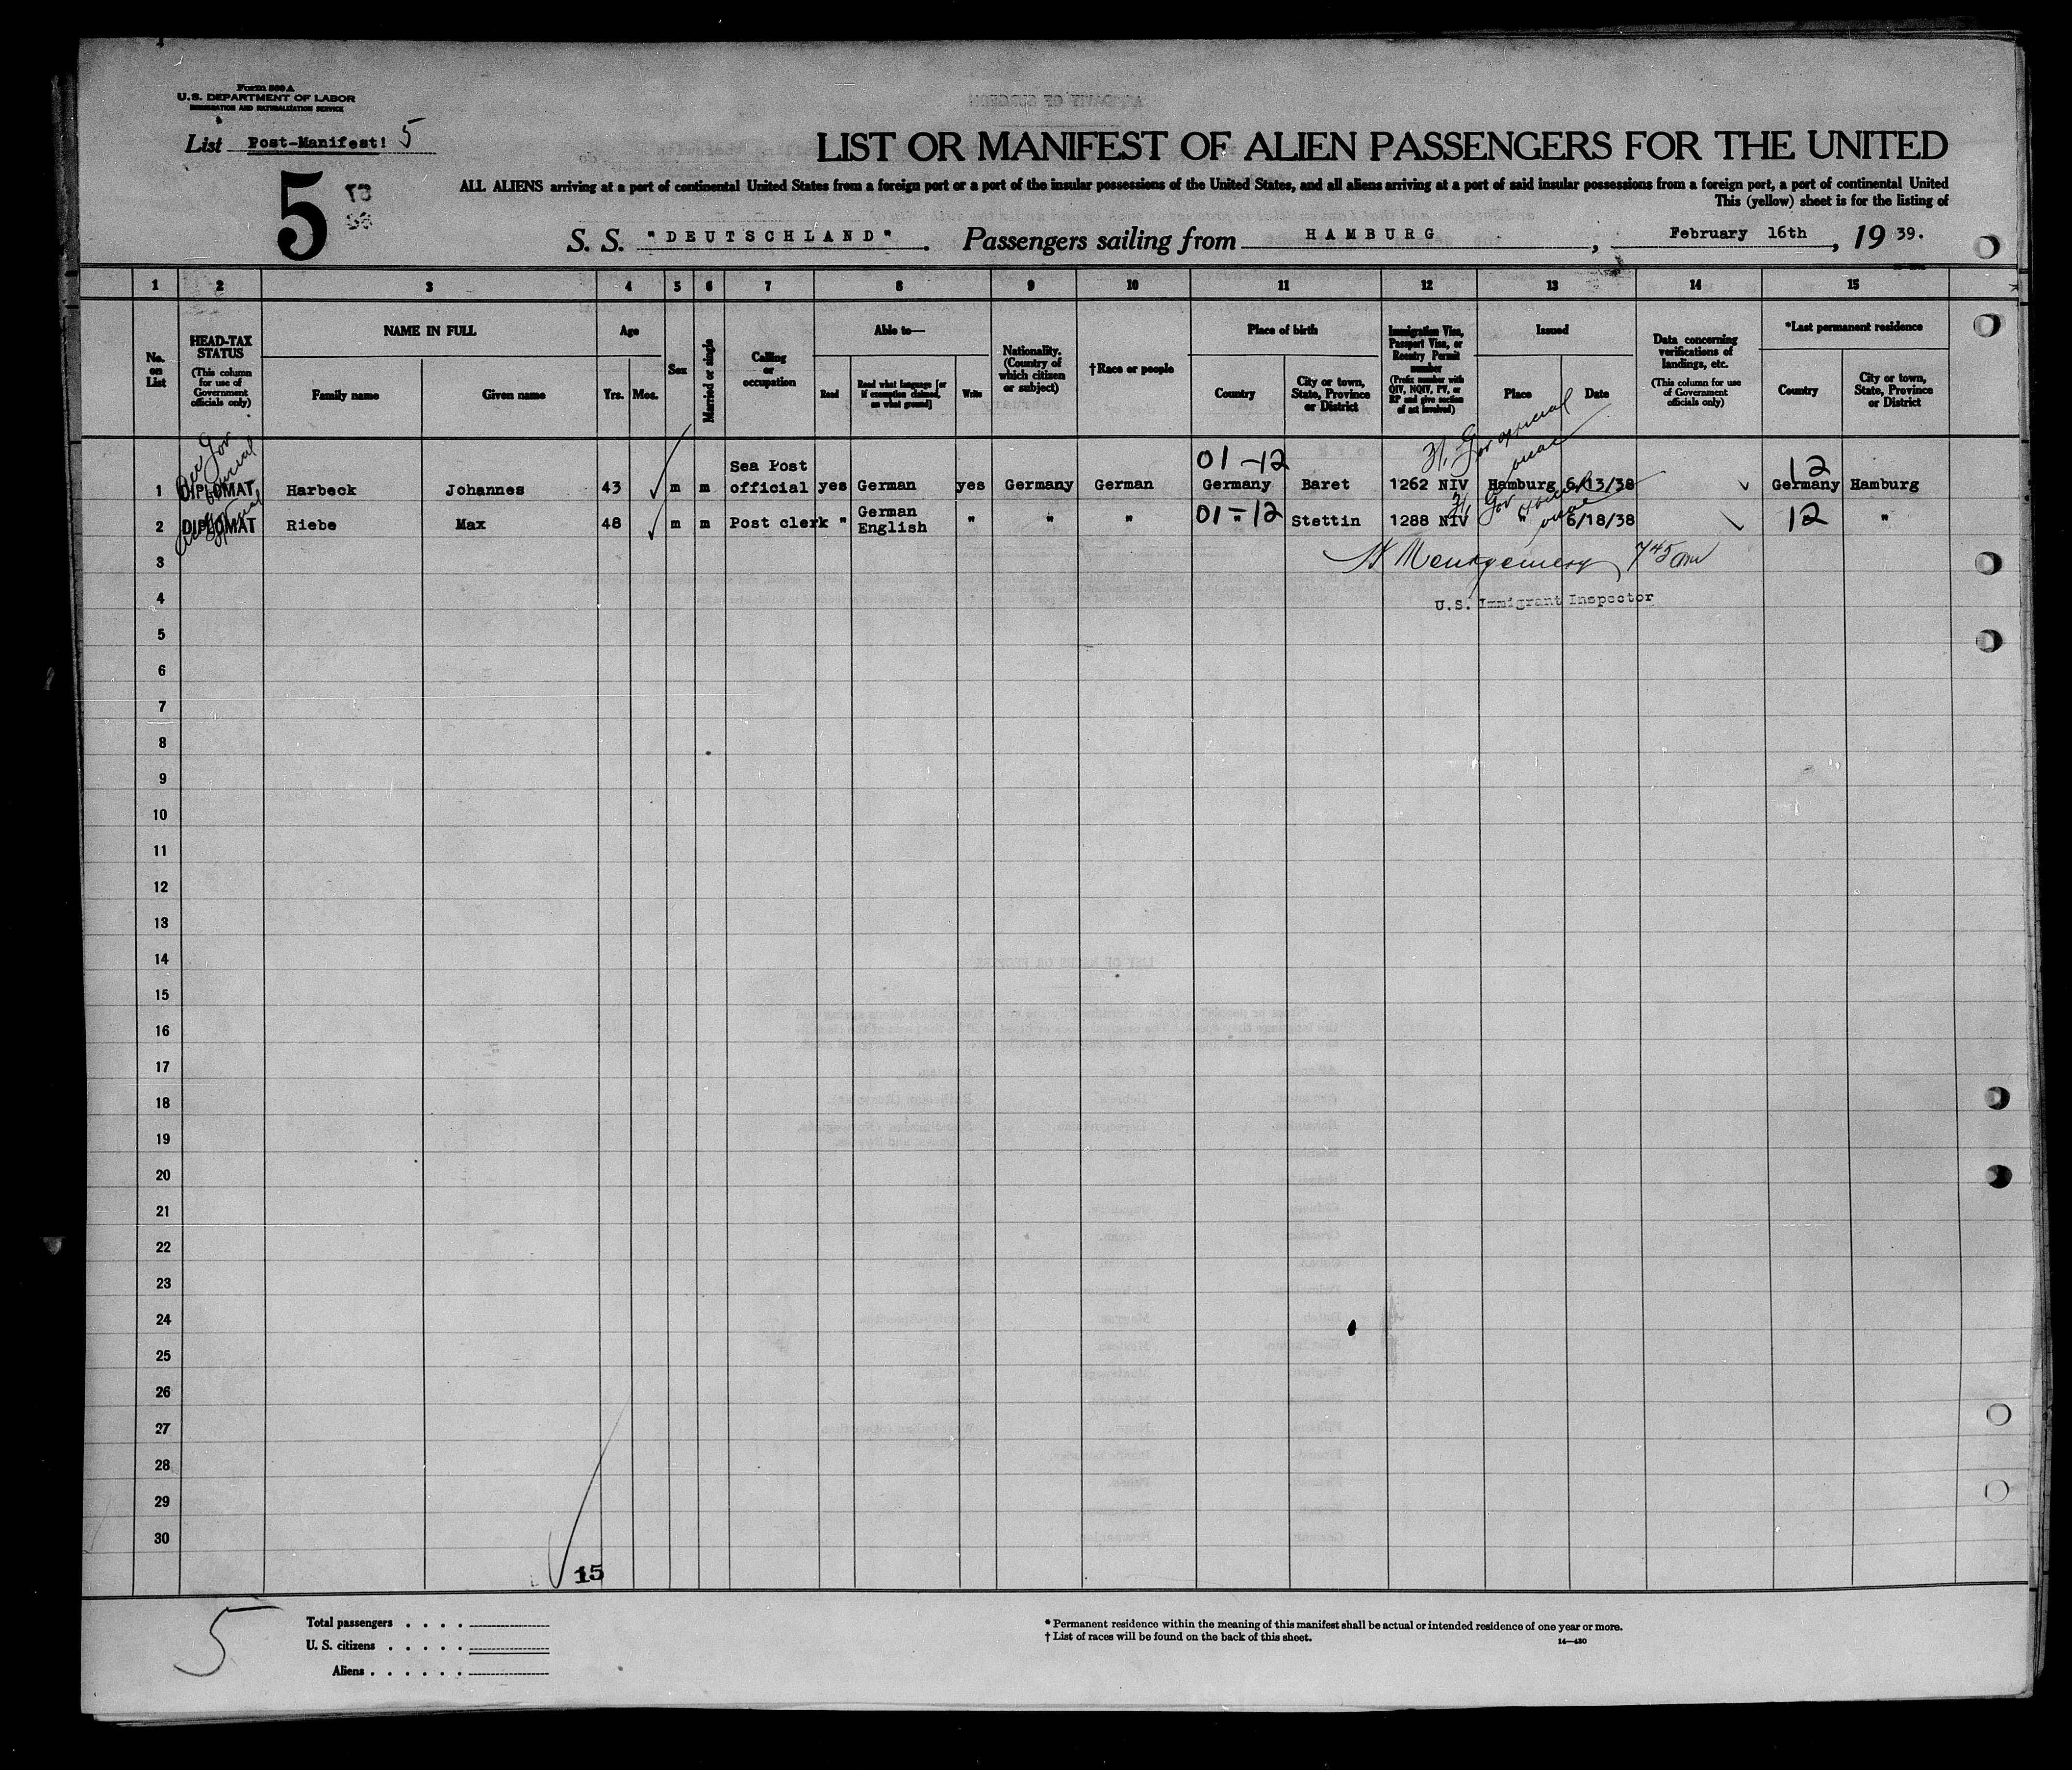 Form 500 A
U.S. DEPARTMENT OF LABOR
IMMIGRATION AND NATURALIZATION SERVICE
List Post-Manifest! 5
5
LIST OR MANIFEST OF ALIEN PASSENGERS FOR THE UNITED
ALL ALIENS arriving at a port of continental United States from a foreign port or a port of the insular possessions of the United States, and all aliens arriving at a port of said insular possessions from a foreign port, a port of continental United
This (yellow) sheet is for the listing of
S. S. "DEUTSCHLAND". Passengers sailing from HAMBURG, February 16th, 19 39.
1 2 3 4 5 6 7 8 9 10 11 12 13 14 15
No. on List
HEAD-TAX STATUS
(This column for use of Government officials only)
NAME IN FULL
Family name
Given name
Age
Yrs. Mos.
Sex
Married or single
Calling or occupation
Able to—
Read
Read what language [or if exemption claimed, on what ground]
Write
Nationality. (Country of which citizen or subject)
†Race or people
Place of birth
Country
City or town, State, Province or District
Immigration Visa, Passport Visa, or Reentry Permit number
(Prefix number with QIV, NQIV, PV, or RP and give section of act involved)
Issued
Place
Date
Data concerning verifications of landings, etc.
(This column for use of Government officials only)
*Last permanent residence
Country
City or town, State, Province or District
01 -12
12
1 DIPLOMAT Harbeck Johannes 43 m m Sea Post official yes German yes Germany German Germany Baret 1262 NIV Hamburg 6/13/38 Germany Hamburg
2 DIPLOMAT Riebe Max 48 m m Post clerk " German English " " " 01 - " 12 Stettin 1288 NIV " 6/18/38 12 "
3 Montgemery 745 am
4 U.S. Immigrant Inspector
5
6
7
8
9
10
11
12
13
14
15
16
17
18
19
20
21
22
23
24
25
26
27
28
29
30
15
5
Total passengers . . . .
U. S. citizens . . . . .
Aliens . . . . . .
* Permanent residence within the meaning of this manifest shall be actual or intended residence of one year or more.
† List of races will be found on the back of this sheet.
14—430